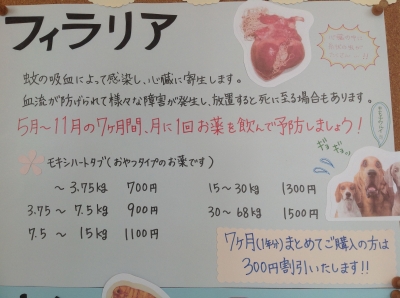 フィラリア
蚊の吸血によって感染し、心臓に寄生します。
血流が妨げられて様々な障害が発生し、放置すると死に至る場合もあります。
5月〜11月の7ヶ月間、月に1回お薬を飲んで予防しましょう!
モキシハートタブ(おやつタイプのお薬です)
〜 3.75kg 700円
3.75 〜 7.5kg 900円
7.5 〜 15kg 1100円
15〜30kg 1300円
30〜68kg 1500円
ギョギョッ
7ヶ月(1年分)まとめてご購入の方は
300円割引いたします!!